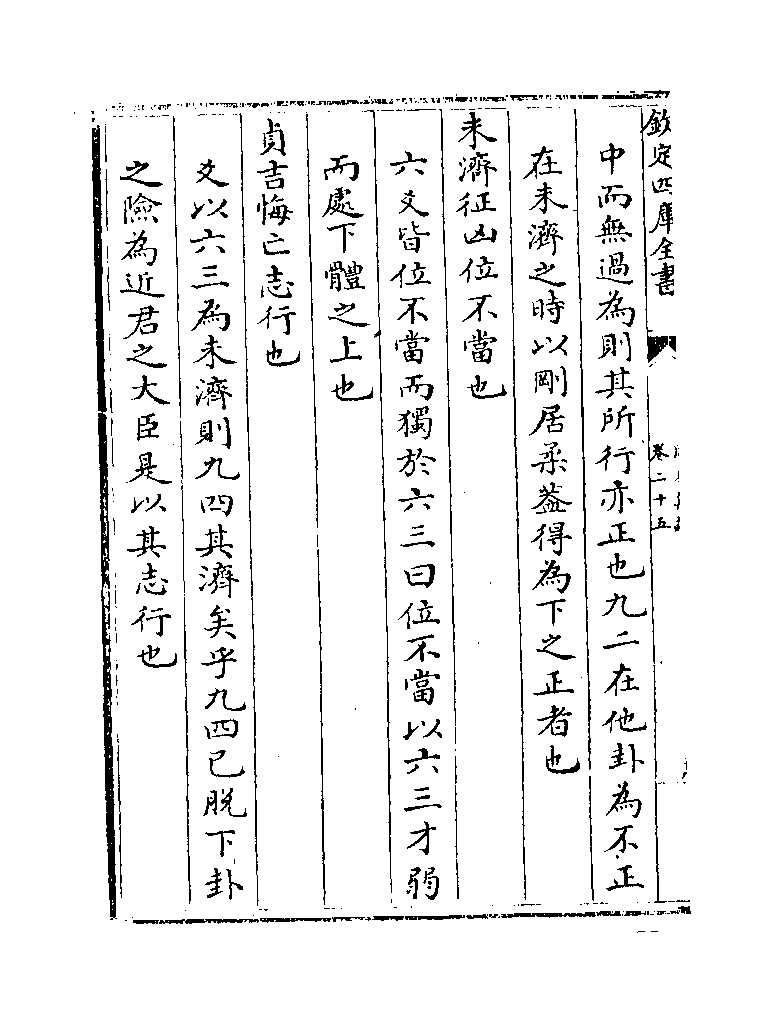 欽定四庫全書
卷二十五
中而無過為則其所行亦正也九二在他卦為不正
在未濟之時以剛居柔葢得為下之正者也
未濟征凶位不當也
六爻皆位不當而獨於六三曰位不當以六三才弱
而處下體之上也
貞吉悔亡志行也
爻以六三為未濟則九四其濟矣乎九四已脫下卦
之險為近君之大臣是以其志行也